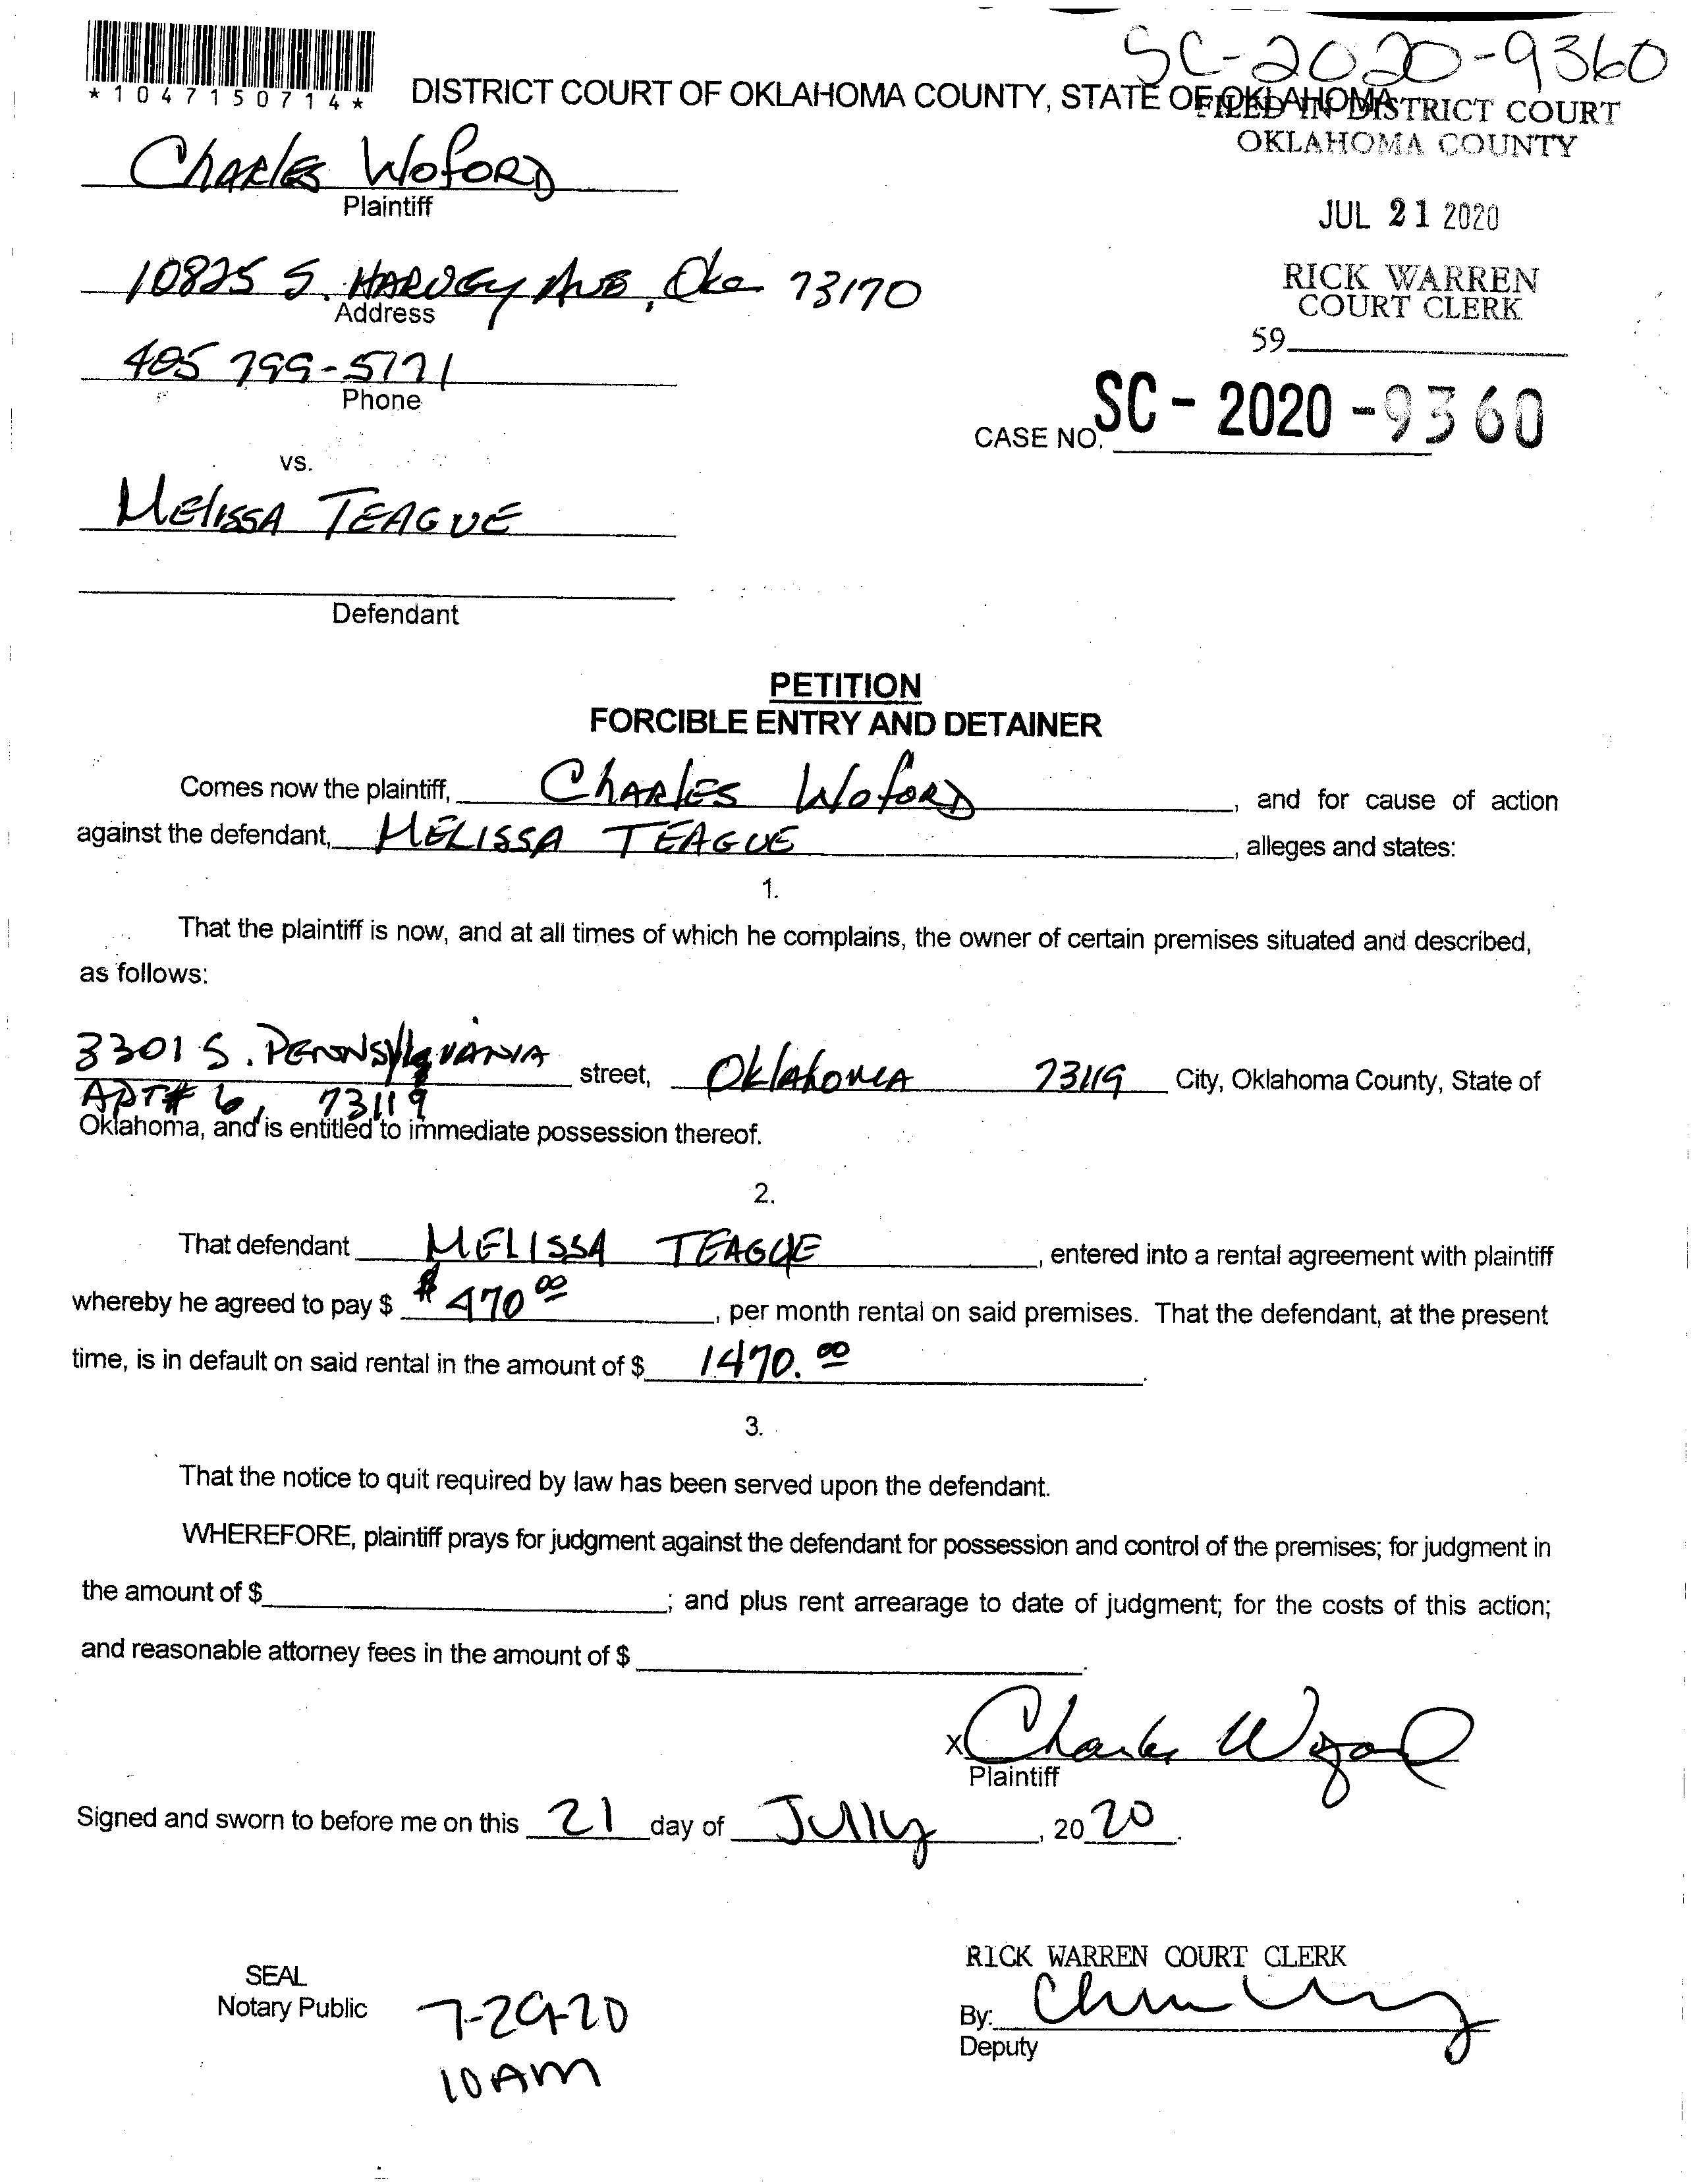 SC-2020-9360
*1047150714*
DISTRICT COURT OF OKLAHOMA COUNTY, STATE OF OKLAHOMA
FILED IN DISTRICT COURT
OKLAHOMA COUNTY
Charles Woford
Plaintiff
JUL 21 2020
10825 S. Harvey Ave, Okc 73170
Address
RICK WARREN
COURT CLERK
59
405 799-5771
Phone
CASE NO. SC - 2020 - 9360
vs.
Melissa Teague
Defendant
PETITION
FORCIBLE ENTRY AND DETAINER
Comes now the plaintiff, Charles Woford, and for cause of action
against the defendant, Melissa Teague, alleges and states:
1.
That the plaintiff is now, and at all times of which he complains, the owner of certain premises situated and described,
as follows:
3301 S. Pennsylvania street, Oklahoma 73119 City, Oklahoma County, State of
Apt# 6, 73119
Oklahoma, and is entitled to immediate possession thereof.
2.
That defendant Melissa Teague, entered into a rental agreement with plaintiff
whereby he agreed to pay $ $470 00, per month rental on said premises. That the defendant, at the present
time, is in default on said rental in the amount of $ 1470.00.
3.
That the notice to quit required by law has been served upon the defendant.
WHEREFORE, plaintiff prays for judgment against the defendant for possession and control of the premises; for judgment in
the amount of $; and plus rent arrearage to date of judgment; for the costs of this action;
and reasonable attorney fees in the amount of $.
X Charles Woford
Plaintiff
Signed and sworn to before me on this 21 day of Jully, 2020.
RICK WARREN COURT CLERK
SEAL
Notary Public
7-29-20
10AM
By:
Deputy